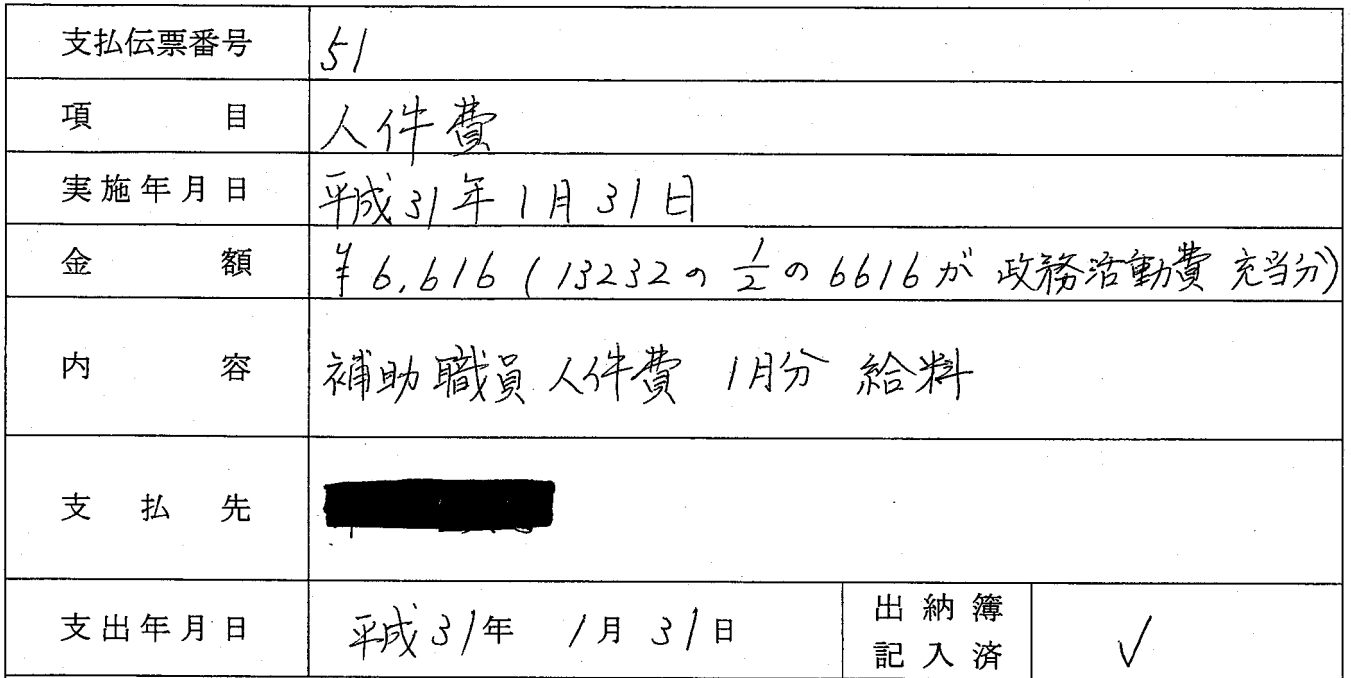 支払伝票番号 51
項目 人件費
実施年月日 平成31年1月31日
金額 ¥6,616 (13232の1/2の6616が政務活動費充当分)
内容 補助職員人件費 1月分 給料
支払先
支出年月日 平成31年 1月31日 出納簿記入済 ✓